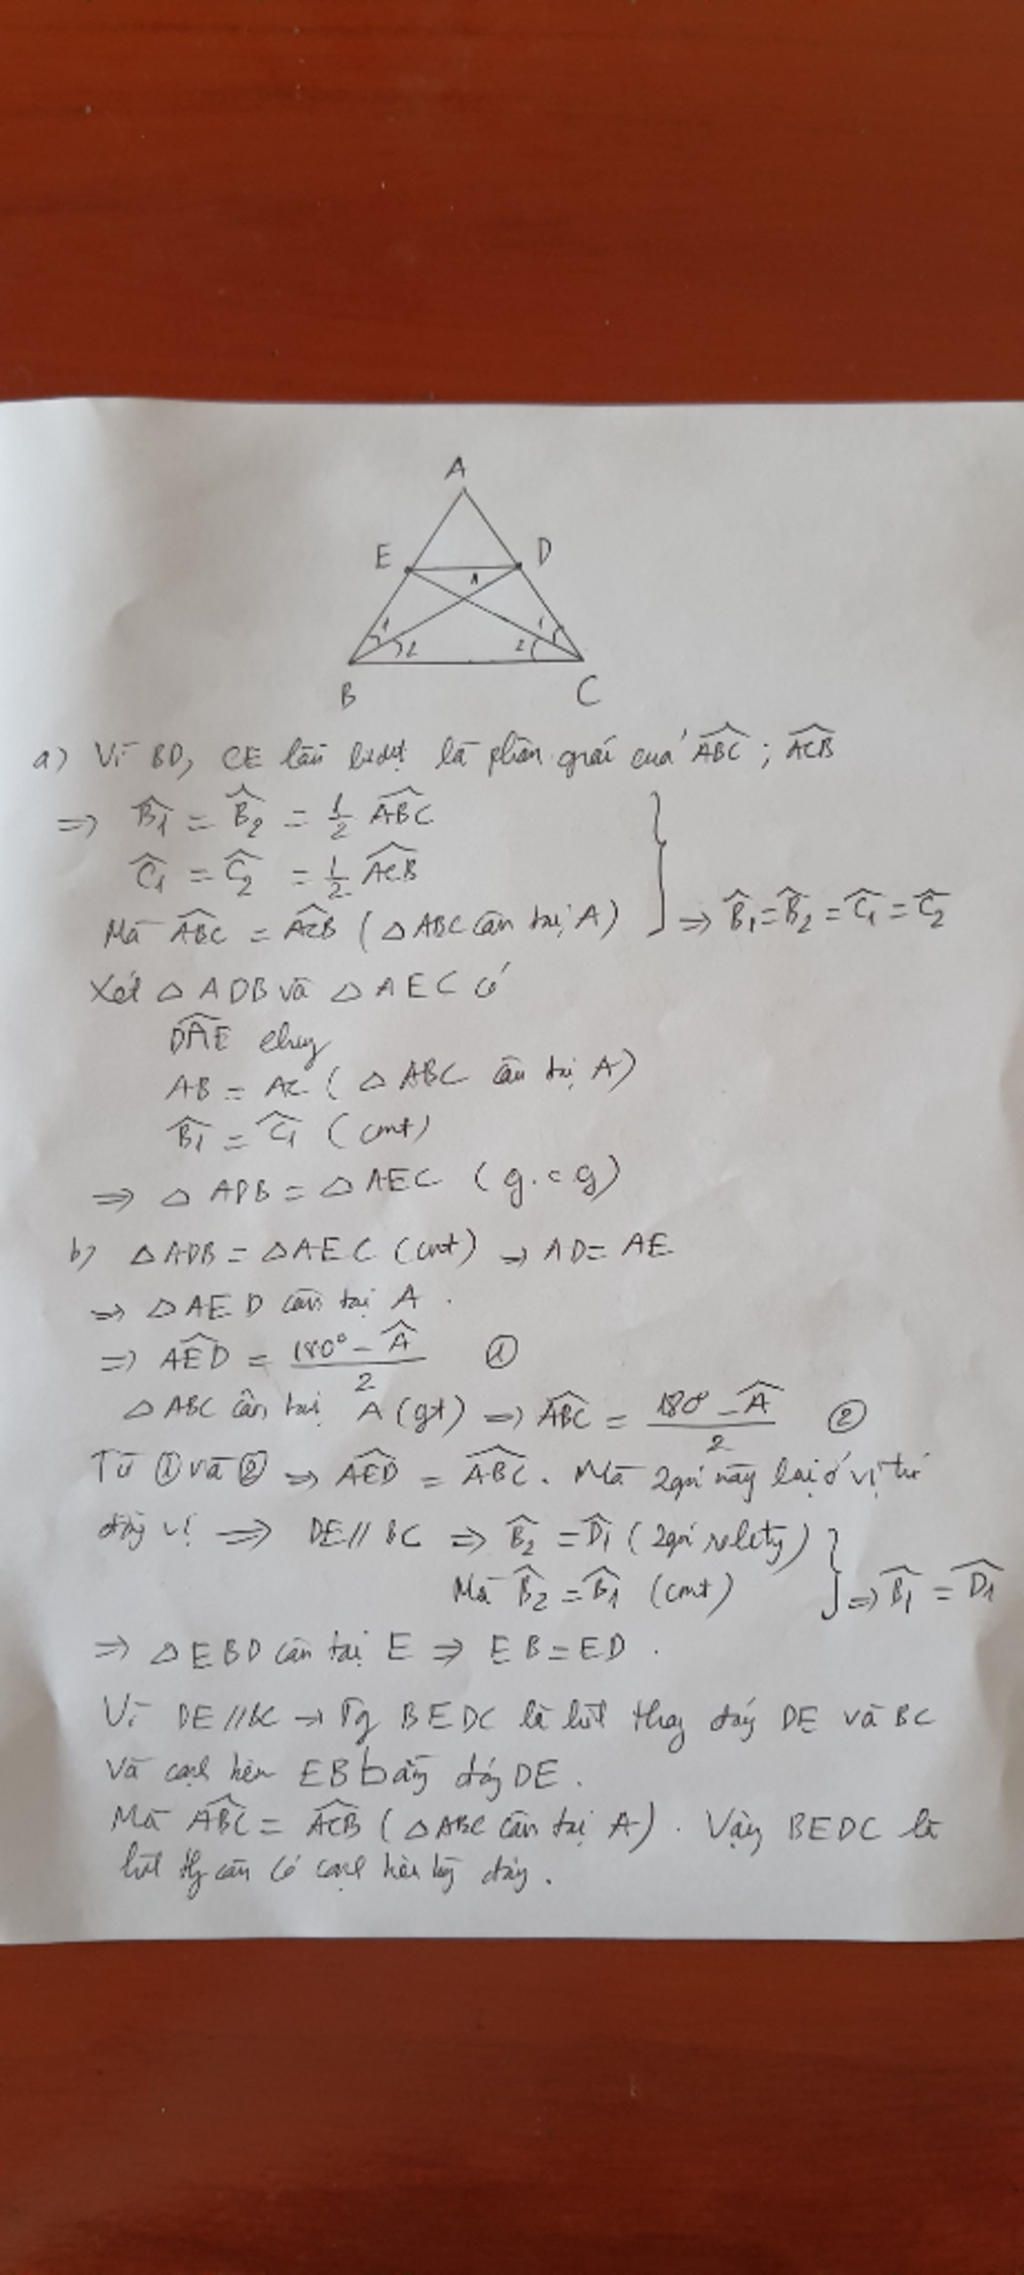 A
E
D
1
1
2
2
1
B
C
a) Vì BD, CE lần lượt là phân giác của \widehat{ABC} ; \widehat{ACB}
=> \widehat{B_1} = \widehat{B_2} = \frac{1}{2} \widehat{ABC}
\widehat{C_1} = \widehat{C_2} = \frac{1}{2} \widehat{ACB}
Mà \widehat{ABC} = \widehat{ACB} (△ ABC cân tại A) } => \widehat{B_1} = \widehat{B_2} = \widehat{C_1} = \widehat{C_2}
Xét △ ADB và △ AEC có
\widehat{DAE} chung
AB = AC (△ ABC cân tại A)
\widehat{B_1} = \widehat{C_1} (cmt)
=> △ ADB = △ AEC (g.c g)
b) △ ADB = △ AEC (cmt) → AD = AE
=> △ AED cân tại A .
=> \widehat{AED} = \frac{180° - \widehat{A}}{2} ①
△ ABC cân tại A (gt) => \widehat{ABC} = \frac{180° - \widehat{A}}{2} ②
Từ ① và ② => \widehat{AED} = \widehat{ABC} . Mà 2 góc này lại ở vị trí
đồng vị => DE // BC => \widehat{B_2} = \widehat{D_1} (2 góc )
Mà \widehat{B_2} = \widehat{B_1} (cmt) } => \widehat{B_1} = \widehat{D_1}
=> △ EBD cân tại E => EB = ED .
Vì DE // BC → Tg BEDC là hình thang đáy DE và BC
và cạnh bên EB bằng đáy DE .
Mà \widehat{ABC} = \widehat{ACB} (△ ABC cân tại A) . Vậy BEDC là
hình thg cân có cạnh bên bg đáy .